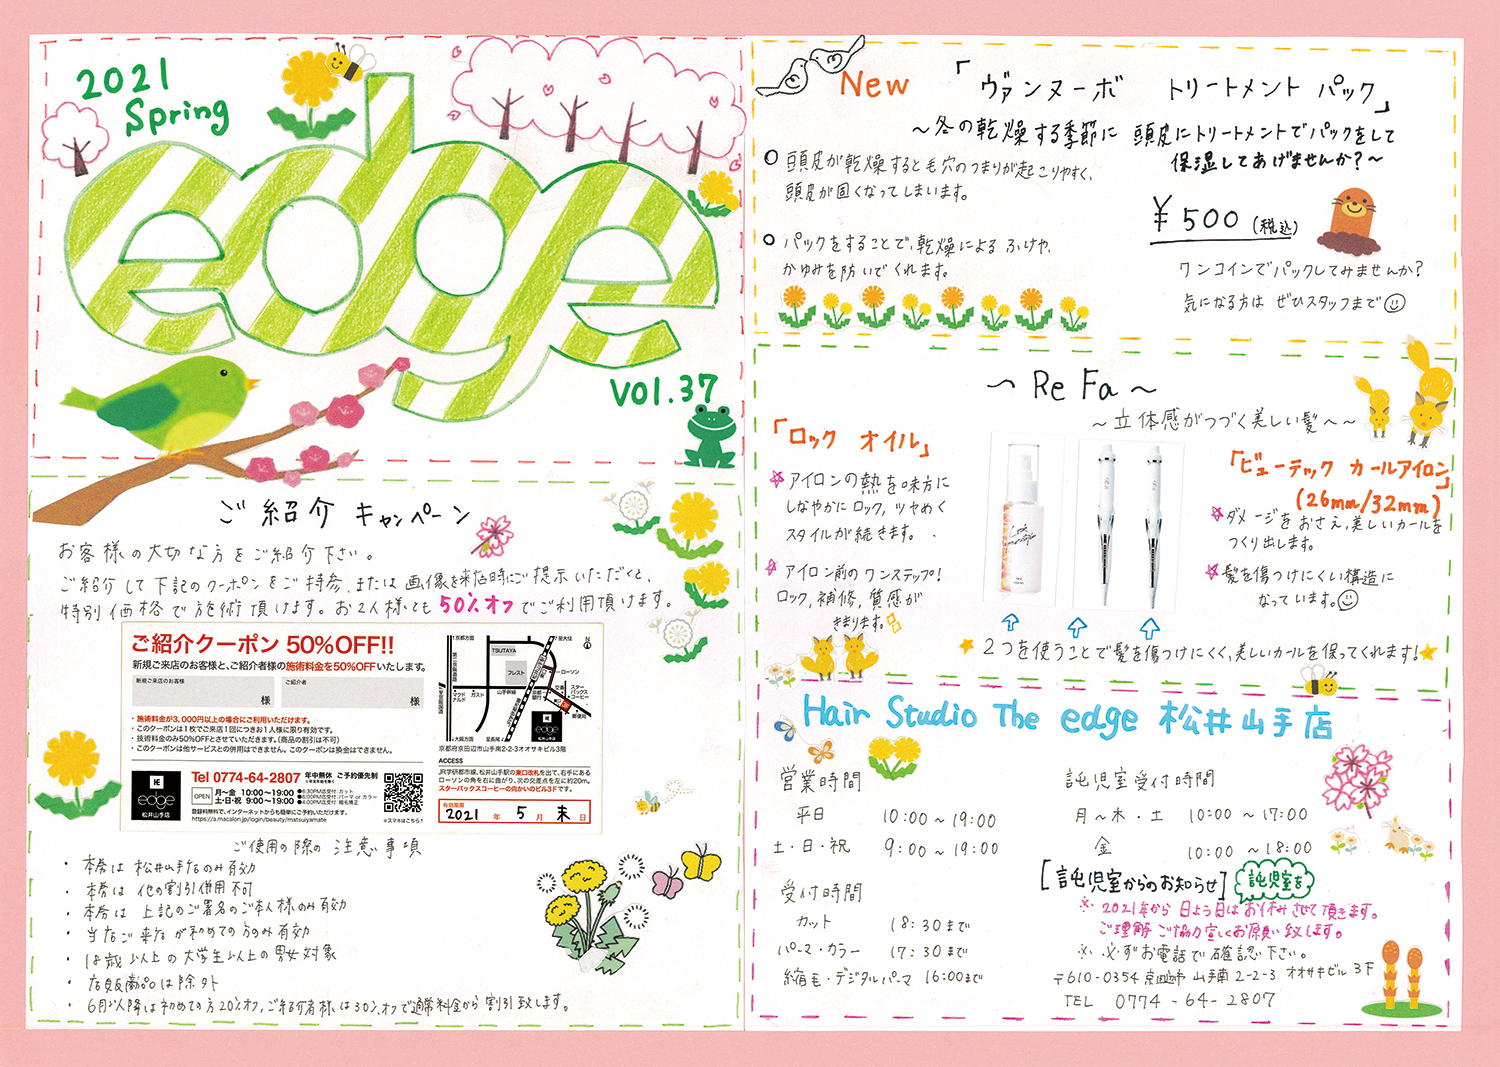 2021
Spring
edge
vol.37
ご紹介 キャンペーン
お客様の大切な方をご紹介下さい。
ご紹介して下記のクーポンをご持参、または画像を来店時にご提示いただくと、
特別価格で施術頂けます。お2人様とも50%オフでご利用頂けます。
ご紹介クーポン 50%OFF!!
新規ご来店のお客様と、ご紹介者様の施術料金を50%OFFいたします。
新規ご来店のお客様
様
ご紹介者
様
・施術料金が3,000円以上の場合にご利用いただけます。
・このクーポンは1枚でご来店1回につきお1人様に限り有効です。
・技術料金のみ50%OFFとさせていただきます。(商品の割引は不可)
・このクーポンは他サービスとの併用はできません。このクーポンは換金はできません。
HE
edge
松井山手店
Tel 0774-64-2807 年中無休 ご予約優先制
OPEN
月〜金 10:00〜19:00
土・日・祝 9:00〜19:00
●6:30PM迄受付:カット
●5:30PM迄受付:パーマ or カラー
●4:00PM迄受付:縮毛矯正
登録料無料で、インターネットからも簡単にご予約いただけます。
https://a.macalon.jp/login/beauty/matsuiyamate
※スマホはこちら↑
TSUTAYA
フレスト
ローソン
マクドナルド
ガスト
山手幹線
京都銀行
交番
スターバックスコーヒー
郵便局
至大住
至京都方面
至大阪方面
至長尾
N
edge
松井山手店
京都府京田辺市山手南2-2-3オオサキビル3階
ACCESS
JR学研都市線、松井山手駅の東口改札を出て、右手にある
ローソンの角を右に曲がり、次の交差点を左に約20m。
スターバックスコーヒーの向かいのビル3Fです。
有効期限
2021 年 5 月 末 日
ご使用の際の 注意事項
・本券は 松井山手店のみ有効
・本券は 他の割引併用不可
・本券は 上記のご署名のご本人様のみ有効
・当店ご来店が初めての方のみ有効
・18歳以上の大学生以上の男女対象
・店販商品は除外
・6月以降は初めての方20%オフ、ご紹介者様は30%オフで通常料金から割引致します。
New 「ヴァンヌーボ トリートメント パック」
〜冬の乾燥する季節に 頭皮にトリートメントでパックをして
保湿してあげませんか?〜
○ 頭皮が乾燥すると毛穴のつまりが起こりやすく、
頭皮が固くなってしまいます。
○ パックをすることで、乾燥による ふけや、
かゆみを防いでくれます。
¥500(税込)
ワンコインでパックしてみませんか?
気になる方は ぜひスタッフまで
〜 ReFa 〜
〜立体感がつづく美しい髪〜〜
「ロック オイル」
☆アイロンの熱を味方に
しなやかに ロック, ツヤめく
スタイルが続きます。
☆アイロン前の ワンステップ!
ロック, 補修, 質感が
きまります。
「ビューテック カールアイロン」
(26mm/32mm)
☆ダメージを おさえ, 美しいカールを
つくり出します。
☆髪を傷つけにくい構造に
なっています。
★2つを使うことで髪を傷つけにくく, 美しいカールを保ってくれます!★
Hair Studio The edge 松井山手店
営業時間
平日 10:00〜19:00
土・日・祝 9:00〜19:00
受付時間
カット 18:30まで
パーマ・カラー 17:30まで
縮毛・デジタルパーマ 16:00まで
託児室受付時間
月〜木・土 10:00〜17:00
金 10:00〜18:00
[託児室からのお知らせ]
託児室を
※ 2021年から 日よう日は お休みさせて頂きます。
ご理解 ご協力宜しくお願い致します。
※ 必ずお電話で確認下さい。
〒610-0354 京田辺市 山手南2-2-3 オオサキビル3F
TEL 0774-64-2807